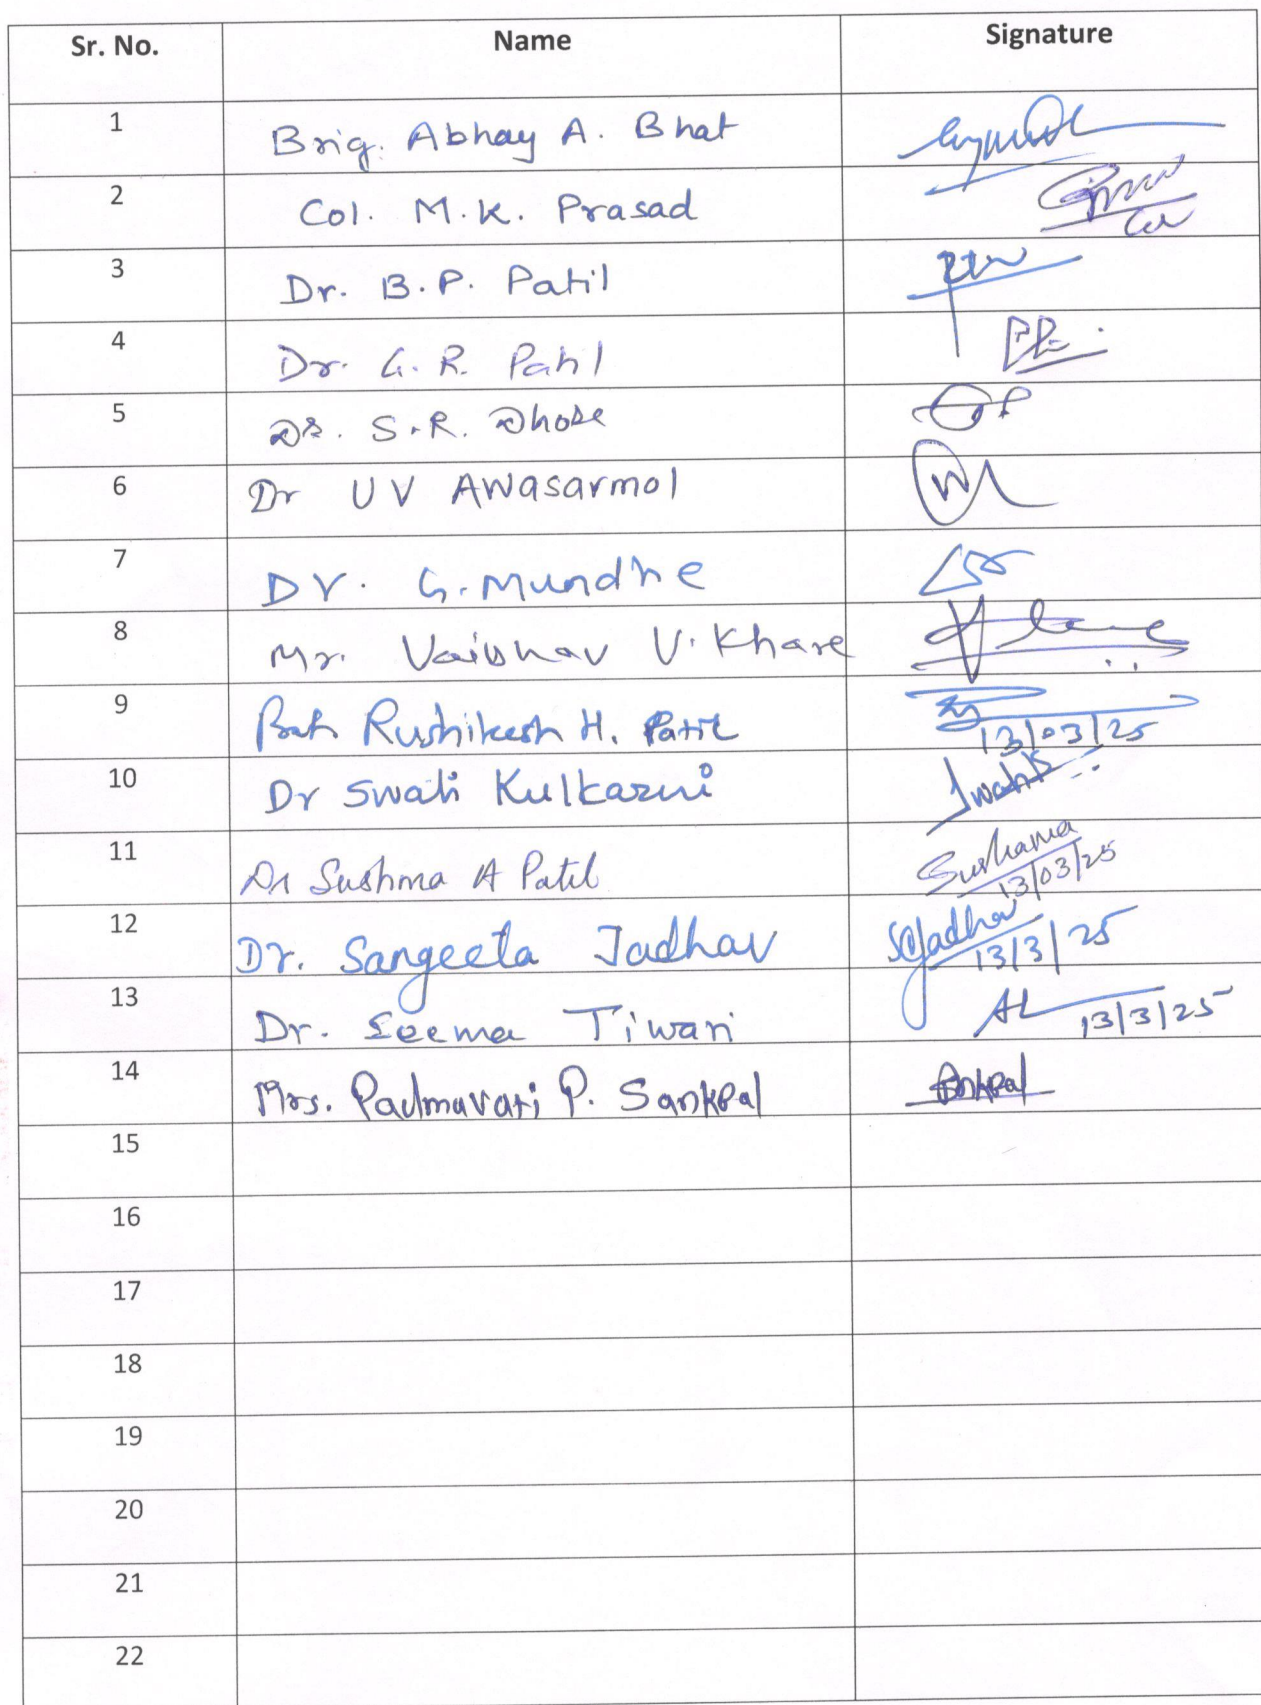 Sr. No. Name Signature
1 Brig. Abhay A. Bhat
2 Col. M.K. Prasad
3 Dr. B.P. Patil
4 Dr. G.R. Patil
5 Dr. S.R. Dhole
6 Dr UV Awasarmol
7 Dr. G. Mundhe
8 Mr. Vaibhav V. Khare
9 Rushikesh H. Patil 13/03/25
10 Dr Swati Kulkarni Swatik
11 Dr Sushma A Patil Sushama
13/03/25
12 Dr. Sangeeta Jadhav SGJadhav
13/3/25
13 Dr. Seema Tiwari 13/3/25
14 Mrs. Padmavati P. Sankpal
15
16
17
18
19
20
21
22